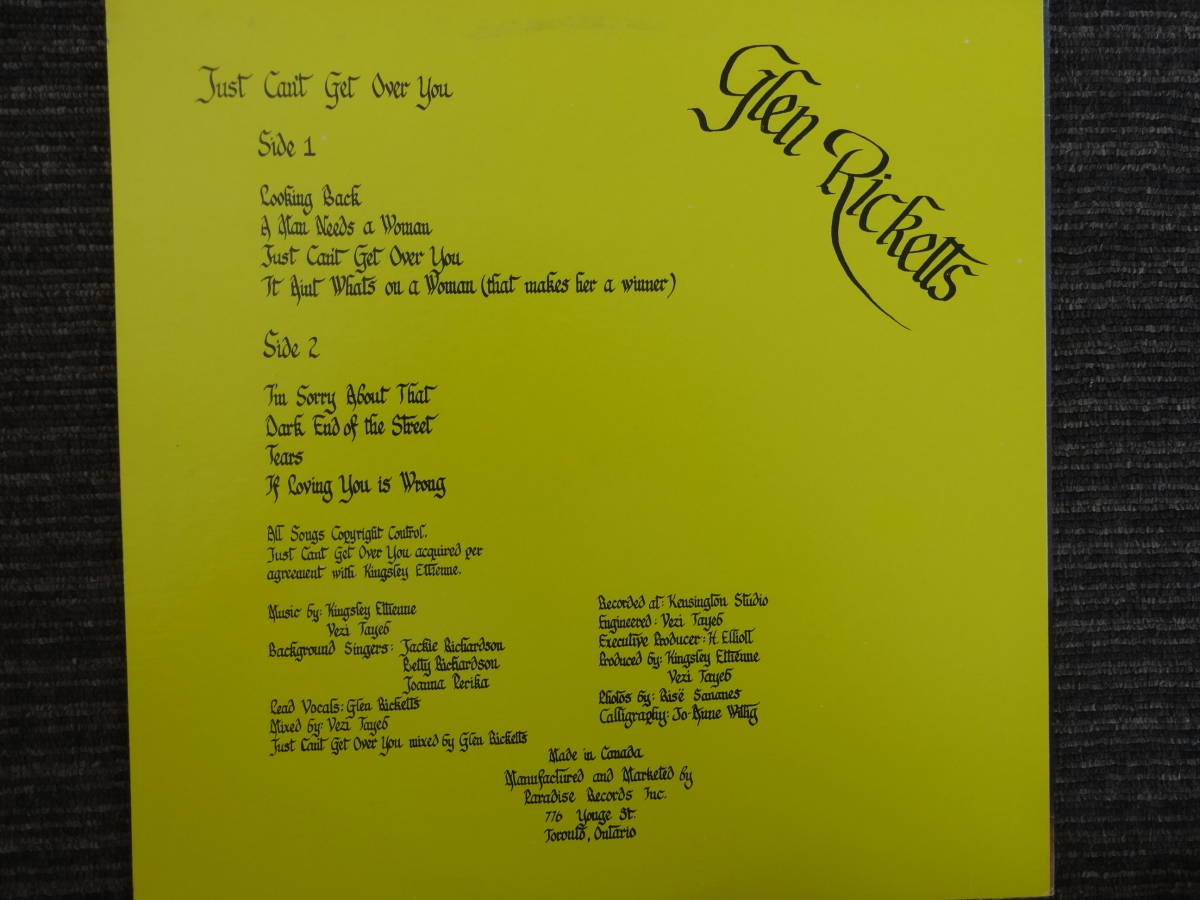 Just Can't Get Over You
Glen Ricketts
Side 1
Looking Back
A Man Needs a Woman
Just Can't Get Over You
It Aint Whats on a Woman (that makes her a winner)
Side 2
I'm Sorry About That
Dark End of the Street
Tears
If Loving You is Wrong
All Songs Copyright Control.
Just Can't Get Over You acquired per
agreement with Kingsley Ettienne.
Music by: Kingsley Ettienne
Vezi Tayeb
Background Singers: Jackie Richardson
Betty Richardson
Joanna Perika
Lead Vocals: Glen Ricketts
Mixed by: Vezi Tayeb
Just Can't Get Over You mixed by Glen Ricketts
Recorded at: Kensington Studio
Engineered: Vezi Tayeb
Executive Producer: H. Elliott
Produced by: Kingsley Ettienne
Vezi Tayeb
Photos by: Risë Sananes
Calligraphy: Jo-Anne Willig
Made in Canada
Manufactured and Marketed by
Paradise Records Inc.
776 Younge St.
Toronto, Ontario